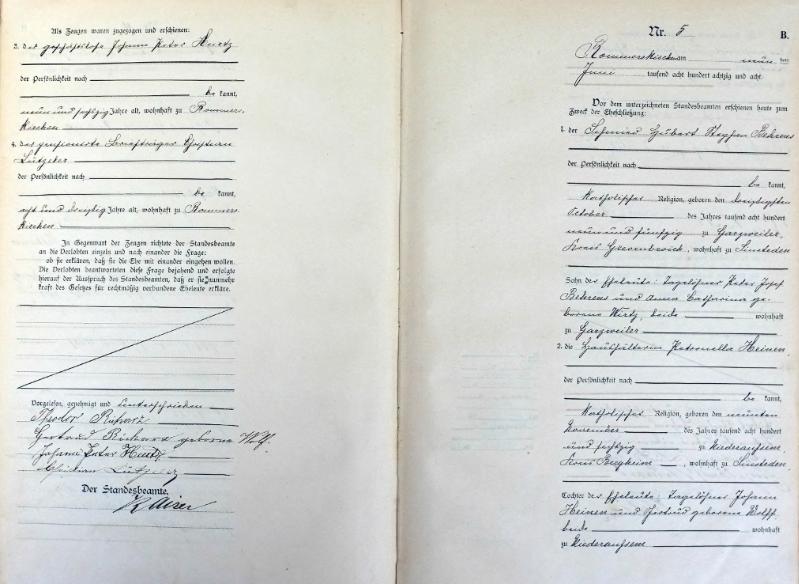 Als Zeugen waren zugezogen und erschienen:
3. der Johann Peter
der Persönlichkeit nach
be kannt,
neun und Jahre alt, wohnhaft zu Rommers-
kirchen
4. der pensionirte
der Persönlichkeit nach
be kannt,
acht und dreißig Jahre alt, wohnhaft zu Rommers-
kirchen
In Gegenwart der Zeugen richtete der Standesbeamte
an die Verlobten einzeln und nach einander die Frage:
ob sie erklären, daß sie die Ehe mit einander eingehen wollen.
Die Verlobten beantworteten diese Frage bejahend und erfolgte
hierauf der Ausspruch des Standesbeamten, daß er sie nunmehr
kraft des Gesetzes für rechtmäßig verbundene Eheleute erkläre.
Vorgelesen, genehmigt und unterschrieben
Theodor
Gertrud geborene
Johann Peter
Der Standesbeamte.
Kaiser
Nr. 5 B.
Rommerskirchen am neun ten
Juni tausend acht hundert achtzig und acht.
Vor dem unterzeichneten Standesbeamten erschienen heute zum
Zweck der Eheschließung:
1. der Schmied Hubert Stephan Behrens
der Persönlichkeit nach
be kannt,
katholischer Religion, geboren den dreißigsten
October des Jahres tausend acht hundert
neun und fünfzig zu Garzweiler,
Kreis Grevenbroich, wohnhaft zu Sinsteden
Sohn der Eheleute: Tagelöhner Peter Josef
Behrens und Anna Catharina ge-
borene Wirtz, beide wohnhaft
zu Garzweiler
2. die Haushälterin Petronella Heinen
der Persönlichkeit nach
be kannt,
katholischer Religion, geboren den neunten
November des Jahres tausend acht hundert
und sechzig zu Niederaussem,
Kreis Bergheim, wohnhaft zu Sinsteden
Tochter der Eheleute: Tagelöhner Johann
Heinen und Gertrud geborene Wolff
beide wohnhaft
zu Niederaussem